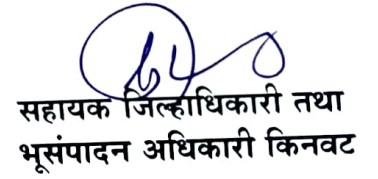 सहायक जिल्हाधिकारी तथा
भूसंपादन अधिकारी किनवट